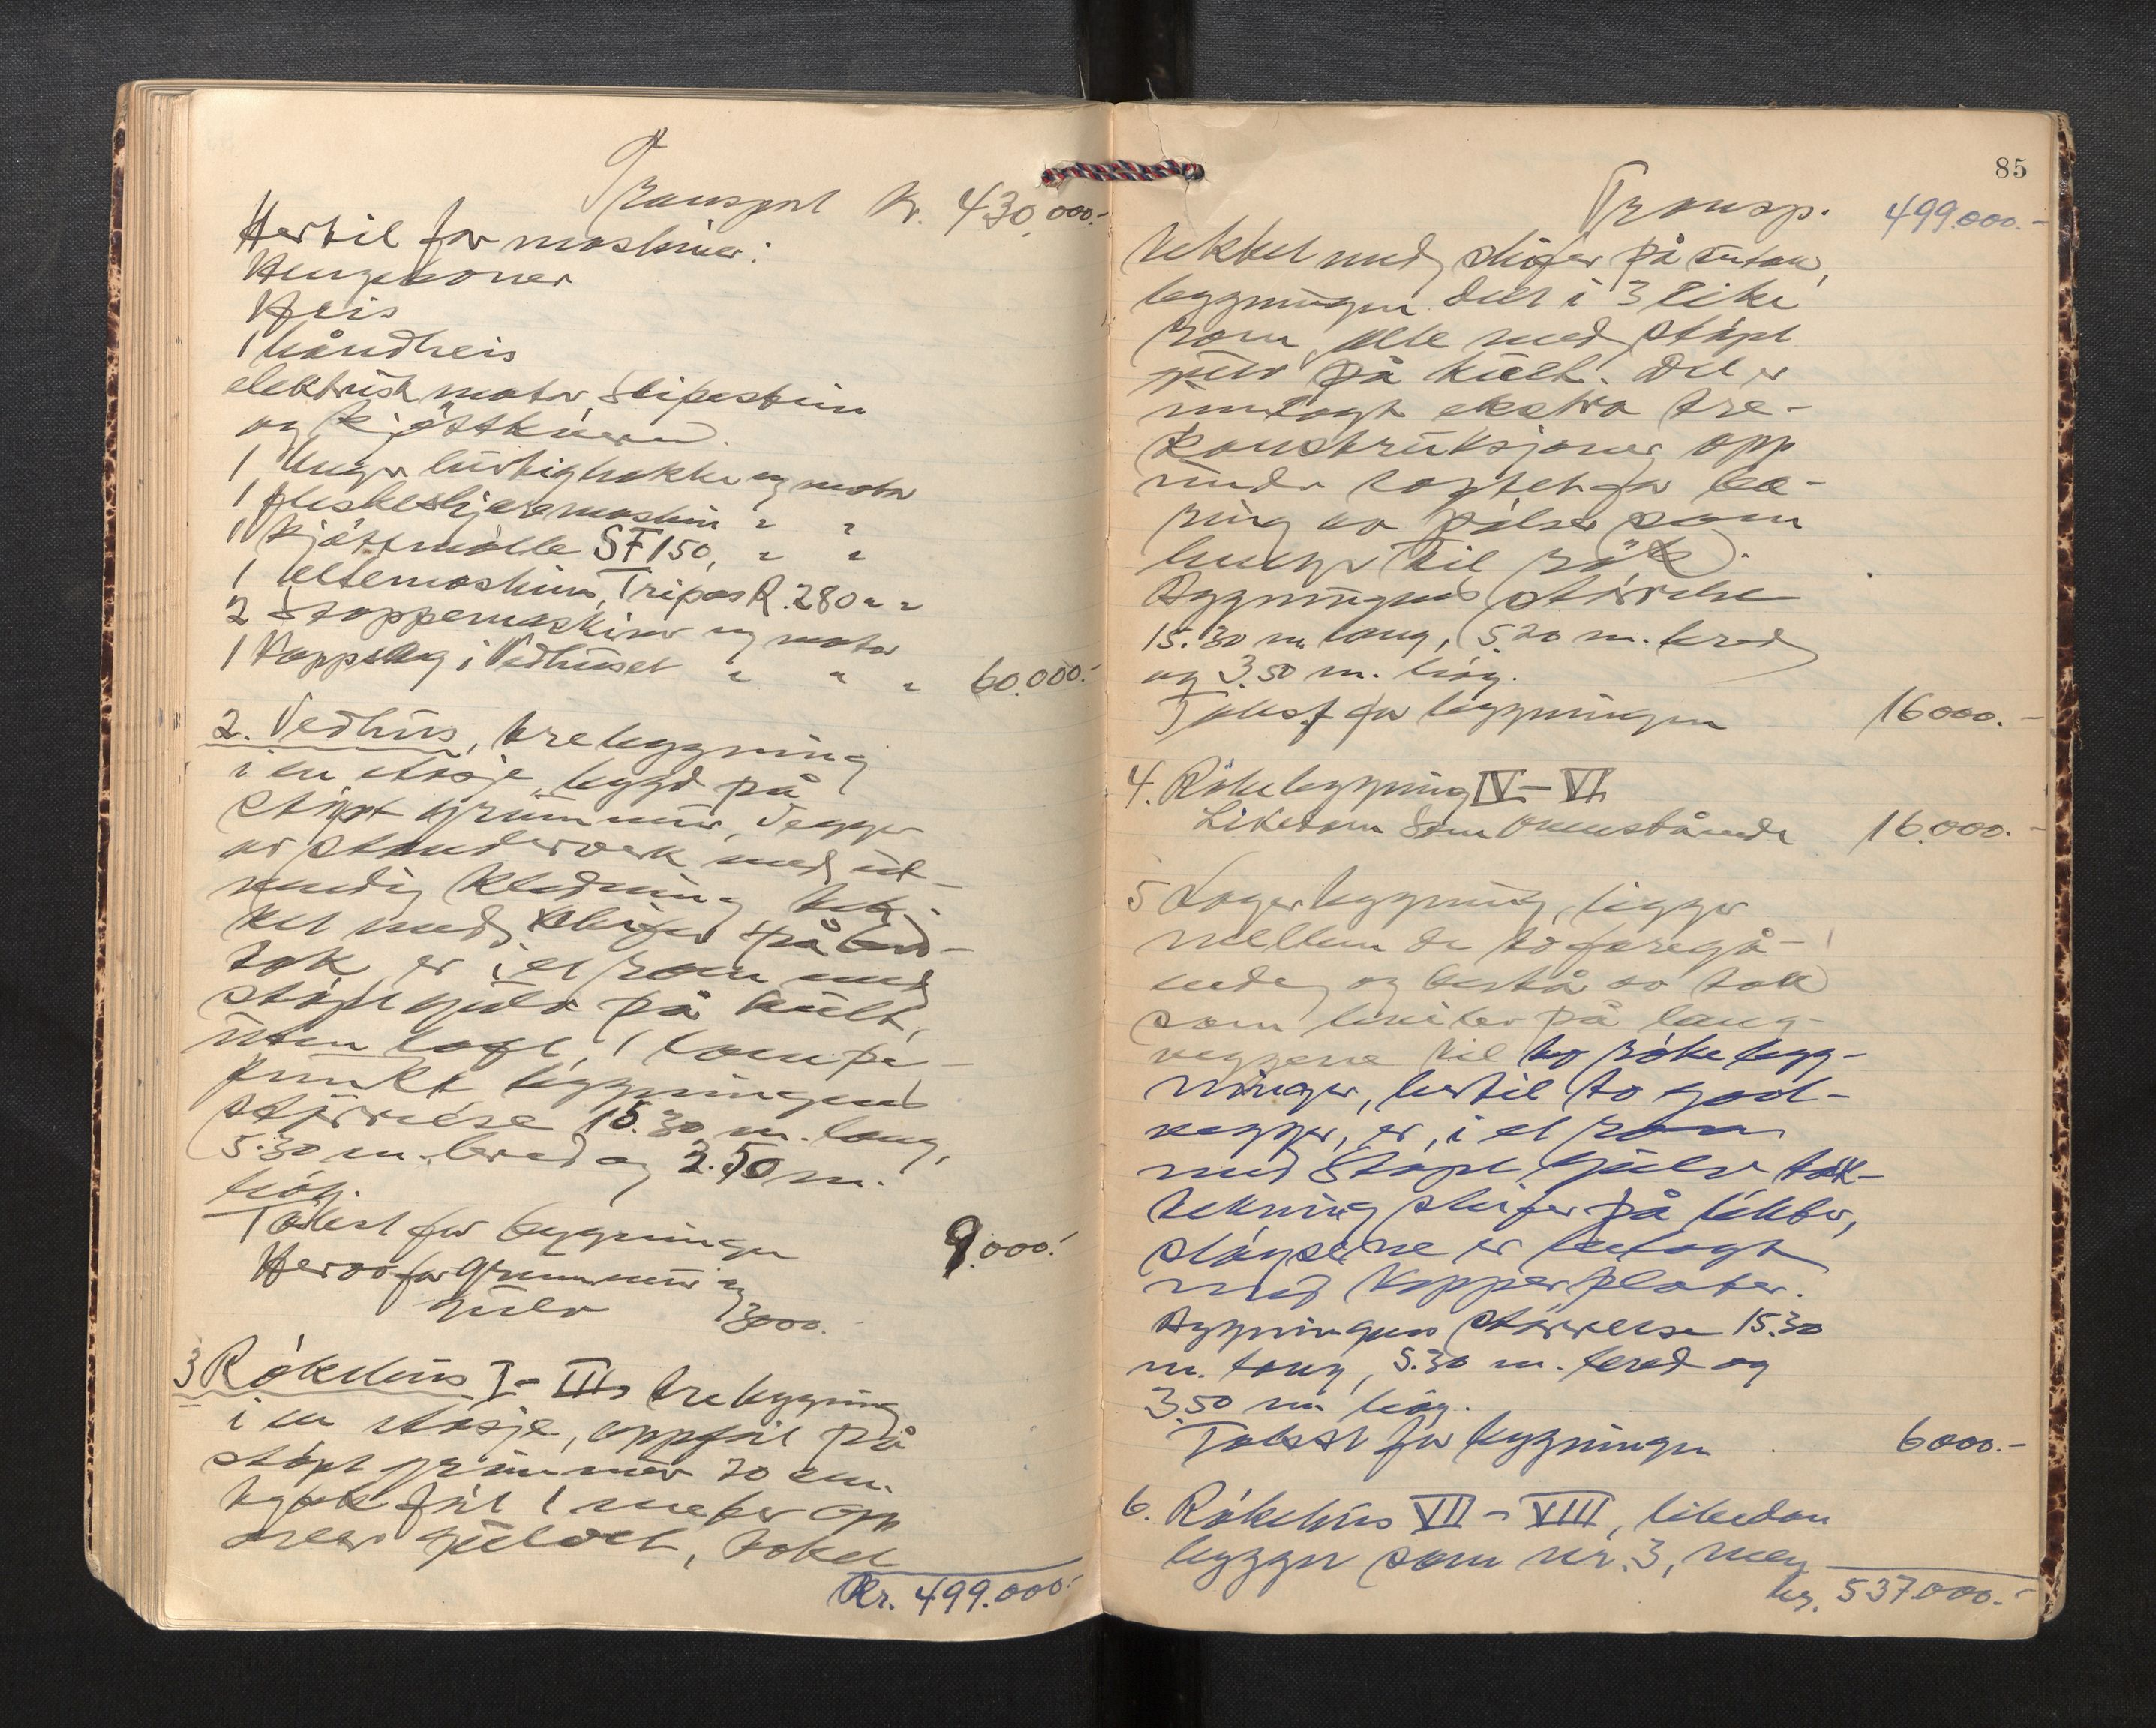 Transport kr. 430.000.-
Hertil for maskiner:
Hengebaner
Heis
1 håndheis
elektrisk motor, slipestein
og kjøttkvern.
1 Unger hurtighakke og motor
1 fleskeskjæremaskin " "
1 Kjøttmølle SF 150, " "
1 Eltemaskin, Tripas R. 280 " "
2 Stoppemaskiner og motor
1 Kappsag i Vedhuset " " " 60.000.-
2. Vedhus, trebygning
i en etasje, bygd på
støpt grunnmur, vegger
av stenderverk med ut-
vendig kledning tek-
ket med skifer på bord-
tak, er i et rom med
støpt gulv på kult,
uten loft, 1 lampe-
punkt bygningens
størrelse 15.30 m. lang,
5.30 m. bred og 2.50 m.
høg.
Takst for bygningen 9.000.-
Herav for grunnmur og
gulv 3000.
3 Røkehus I - III, trebygning
i en etasje, oppført på
støpt grunnmur 20 cm.
tykk ført 1 meter opp
over gulvet, taket
Kr. 499.000.-
85
Transp. 499.000.-
tekket med skifer på sutak,
bygningen delt i 3 like
rom, alle med støpt
gulv på kult. Det er
innlagt ekstra tre-
konstruksjoner opp
under loftet for bæ-
ring av pølser som
henges til røk.
Bygningens størrelse
15.30 m lang, 5.20 m. bred
og 3.50 m. høg.
Takst for bygningen 16000.-
4. Røkebygning IV - VI
Likedan som ovenstående 16.000.-
5 Lagerbygning, ligger
mellem de to foregå-
ende og består av tak
som hviler på lang-
veggene til to røkebygg-
ninger, hertil to gavl-
vegger, er i et rom
med støpt gulv tak-
tekning skifer på lekter,
er belagt
med kopperplater.
Bygningens størrelse 15.30
m. lang, 5.30 m. bred og
3.50 m høg.
Takst for bygningen 6000.-
6. Røkehus VII - VIII, likedan
bygget som nr. 3, men
kr. 537.000.-